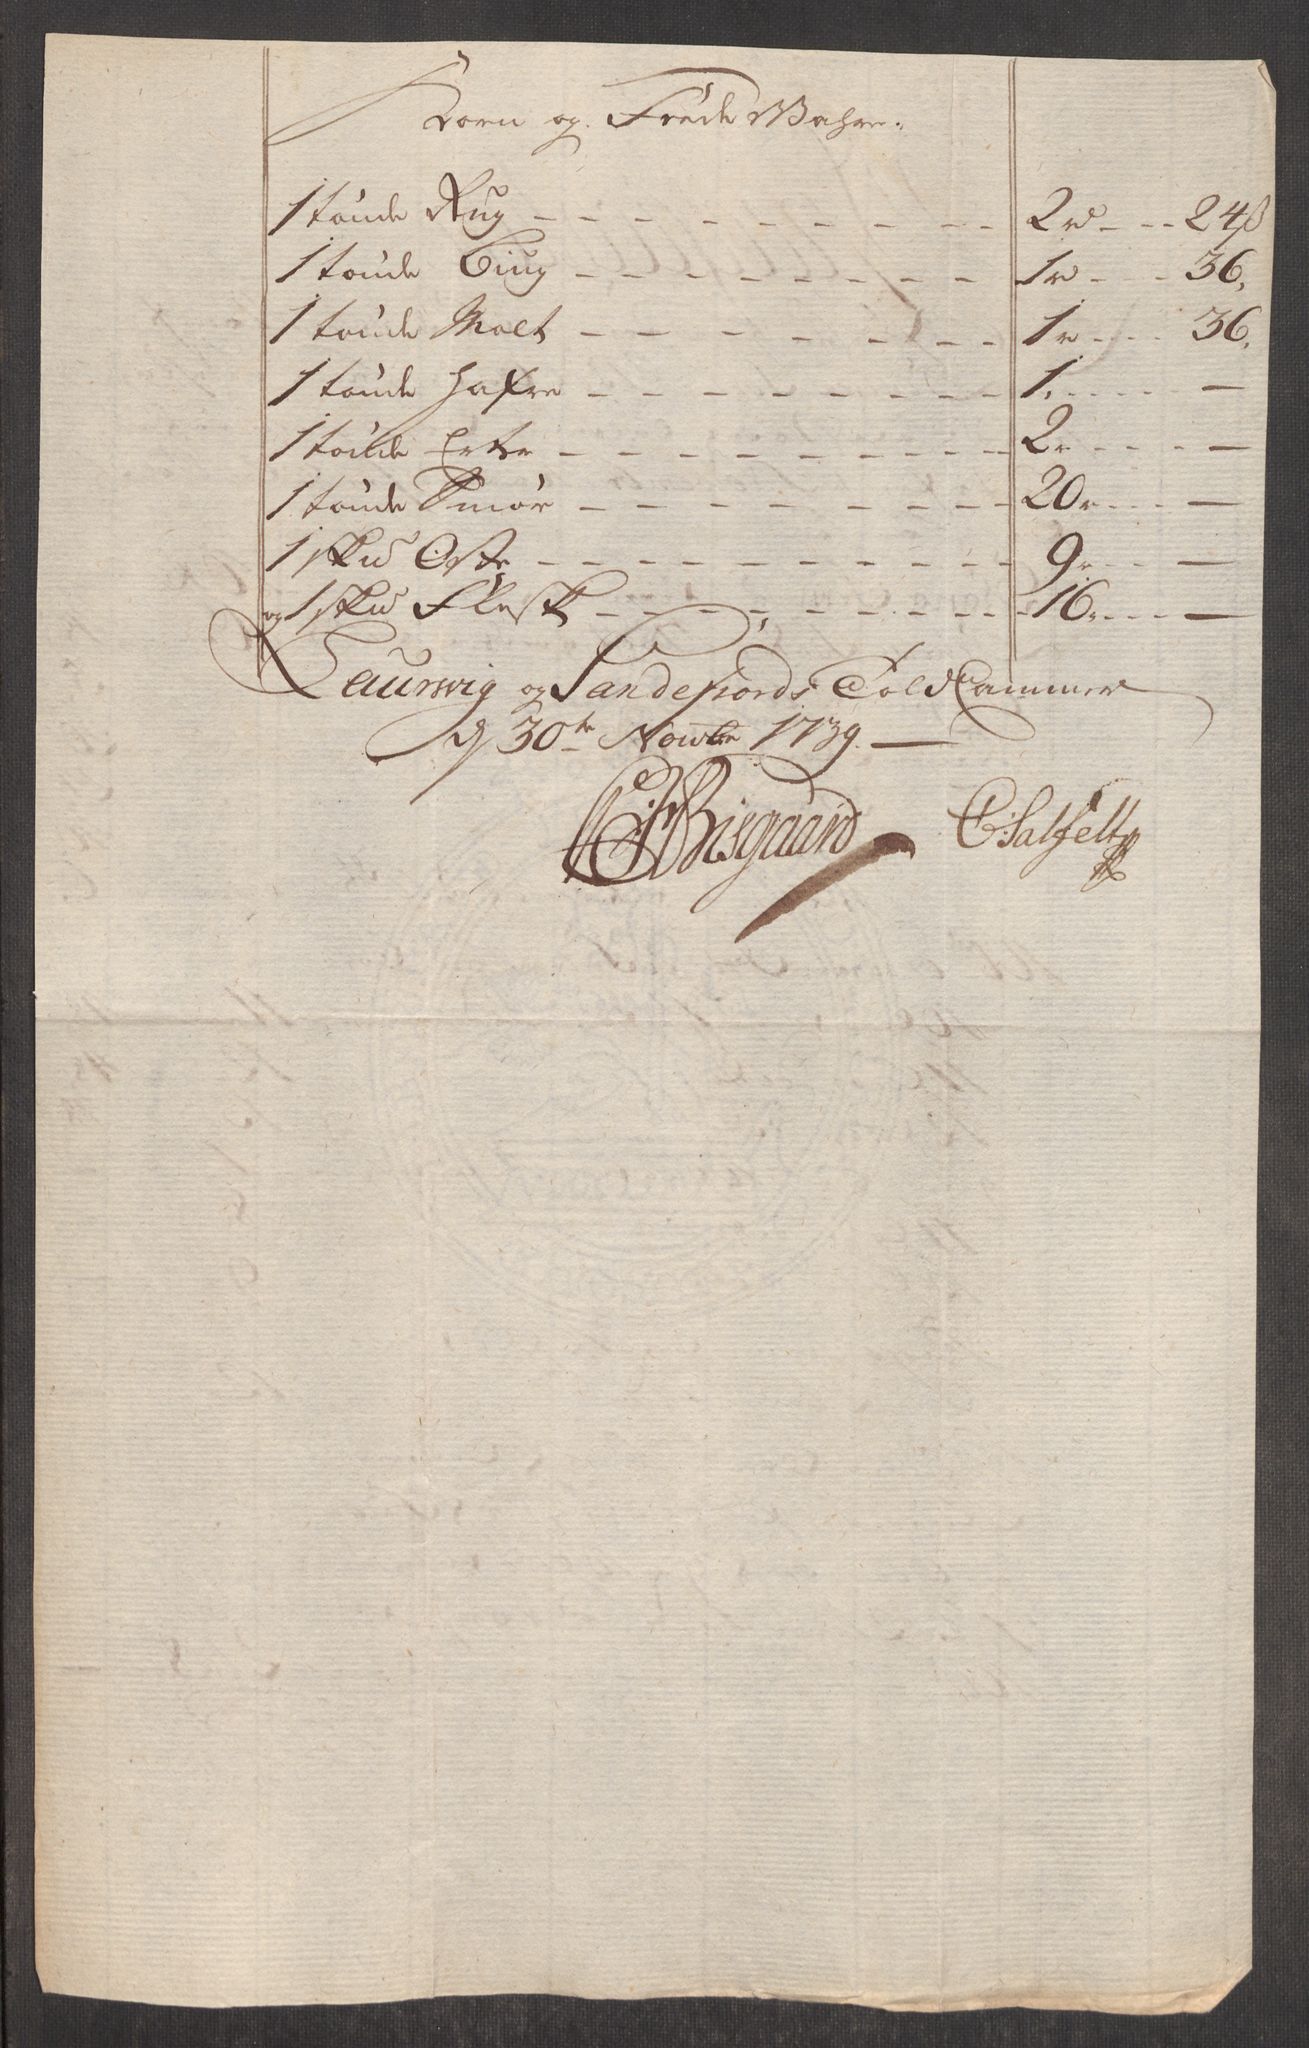 Korn og Fede Wahre.
1 tønde Rug - - - - - - - - - 2 rd - - - 24 ß
1 tønde Biug - - - - - - - - - 1 r - - - 36,
1 tønde Malt - - - - - - - - - 1 r - - - 36,
1 tønde Hafre - - - - - - - - - 1. - - - —
1 tønde Erter - - - - - - - - - 2 r - - - —
1 tønde Smør - - - - - - - - - 20 r - - - —
1 skud Oste - - - - - - - - - 9 r - - - —
og 1 skud Flesk - - - - - - - - - 16 r - - - —
Laurwig og Sandefiords Told Cammer
d 30te Novbr 1739. —
Bisgaard CSalfelt